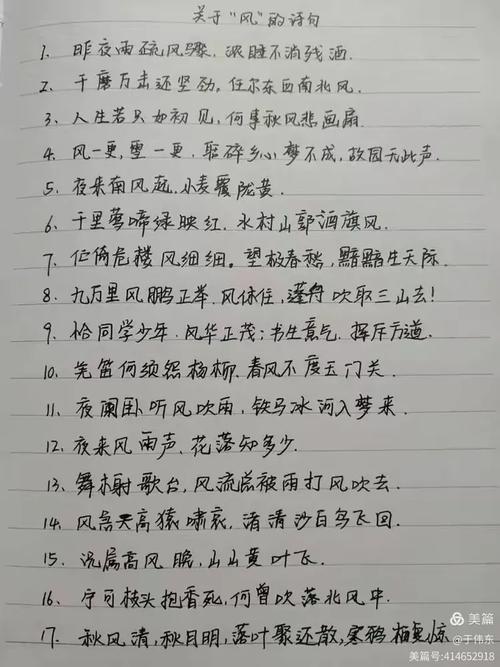 关于“风”的诗句
1. 昨夜雨疏风骤，浓睡不消残酒.
2. 千磨万击还坚劲，任尔东西南北风.
3. 人生若只如初见，何事秋风悲画扇.
4. 风一更，雪一更，聒碎乡心梦不成，故园无此声.
5. 夜来南风起，小麦覆陇黄.
6. 千里莺啼绿映红，水村山郭酒旗风.
7. 伫倚危楼风细细。望极春愁，黯黯生天际.
8. 九万里风鹏正举，风休住，蓬舟吹取三山去！
9. 恰同学少年，风华正茂；书生意气，挥斥方遒.
10. 羌笛何须怨杨柳，春风不度玉门关.
11. 夜阑卧听风吹雨，铁马冰河入梦来.
12. 夜来风雨声，花落知多少.
13. 舞榭歌台，风流总被雨打风吹去.
14. 风急天高猿啸哀，渚清沙白鸟飞回.
15. 况属高风晚，山山黄叶飞.
16. 宁可枝头抱香死，何曾吹落北风中.
17. 秋风清，秋月明，落叶聚还散，寒鸦栖复惊
美篇
@于伟东
美篇号:414652918